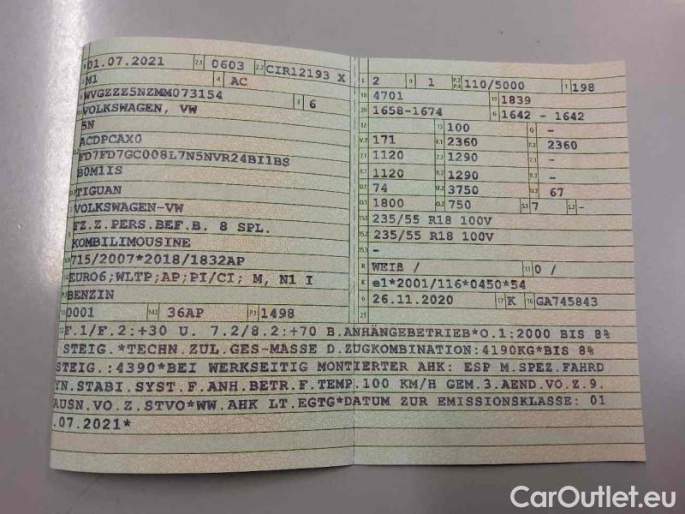 01.07.2021 0603 CIR12193 X
M1 AC
WVGZZZ5NZMM073154 6
VOLKSWAGEN, VW
5N
ACDPCAX0
FD7FD7GC008L7N5NVR24BI1BS
B0M1IS
TIGUAN
VOLKSWAGEN-VW
FZ.Z.PERS.BEF.B. 8 SPL.
KOMBILIMOUSINE
715/2007*2018/1832AP
EURO6;WLTP;AP;PI/CI; M, N1 I
BENZIN
0001 36AP 1498
2 1 110/5000 198
4701 1839
1658-1674 1642 - 1642
100 -
171 2360 2360
1120 1290 -
1120 1290 -
74 3750 67
1800 750 7 -
235/55 R18 100V
235/55 R18 100V
-
WEIß / 0 /
e1*2001/116*0450*54
26.11.2020 K GA745843
F.1/F.2:+30 U. 7.2/8.2:+70 B.ANHÄNGEBETRIEB*O.1:2000 BIS 8%
STEIG.*TECHN.ZUL.GES-MASSE D.ZUGKOMBINATION:4190KG*BIS 8%
STEIG.:4390*BEI WERKSEITIG MONTIERTER AHK: ESP M.SPEZ.FAHRD
YN.STABI.SYST.F.ANH.BETR.F.TEMP.100 KM/H GEM.3.AEND.VO.Z.9.
AUSN.VO.Z.STVO*WW.AHK LT.EGTG*DATUM ZUR EMISSIONSKLASSE: 01
.07.2021*
CarOutlet.eu